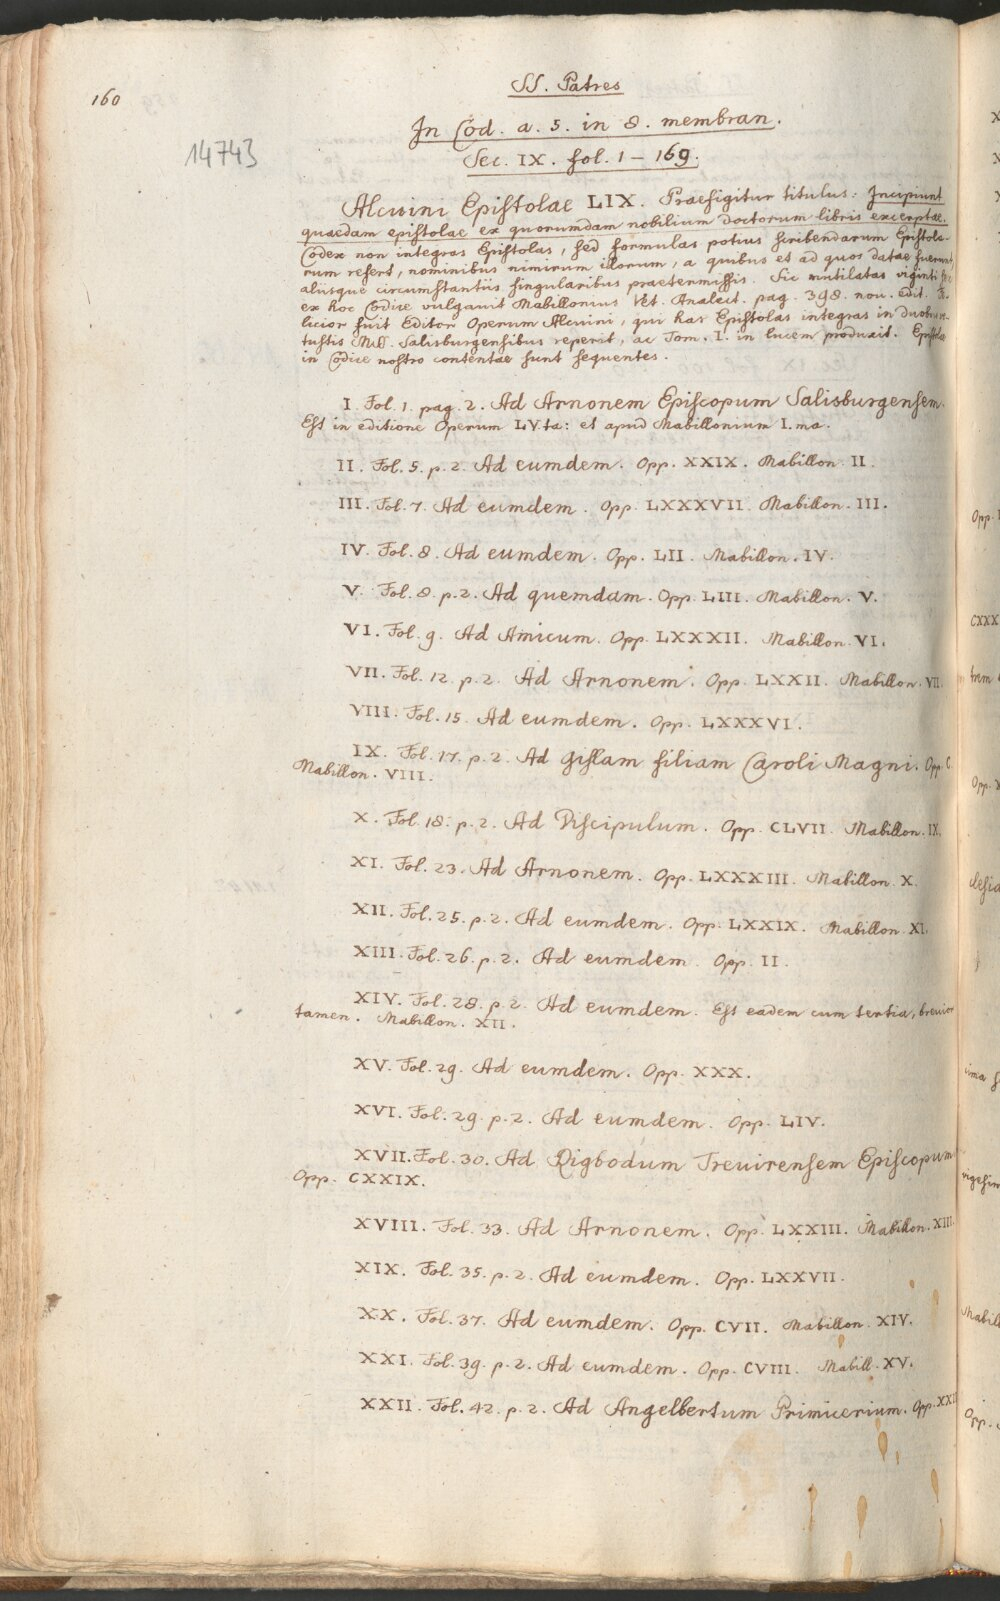 160
SS. Patres
14743
In Cod. a. 5. in 8. membran.
Sec. IX. fol. 1 – 169.
Alcuini Epistolae LIX. Praefigitur titulus: Incipiunt
quaedam epistolae ex quorumdam nobilium doctorum libris excerptae.
Codex non integras Epistolas, sed formulas potius scribendarum Epistola-
rum refert, nominibus nimirum illorum, a quibus et ad quos datae fuerunt
aliisque circumstantiis singularibus praetermissis. Sic mutilatas viginti
ex hoc Codice vulgavit Mabillonius Vet. Analect. pag. 398. nov. edit.
licior fuit Editor Operum Alcuini, qui has Epistolas integras in duobus
tustis Mss. Salisburgensibus reperit, ac Tom. I. in lucem produxit. Epistolae
in Codice nostro contentae sunt sequentes.
I. Fol. 1. pag. 2. Ad Arnonem Episcopum Salisburgensem.
Est in editione Operum LV.ta: et apud Mabillonium I.ma.
II. Fol. 5. p. 2. Ad eumdem. Opp. XXIX. Mabillon. II.
III. Fol. 7. Ad eumdem. Opp. LXXXVII. Mabillon. III.
IV. Fol. 8. Ad eumdem. Opp. LII. Mabillon. IV.
V. Fol. 8. p. 2. Ad quemdam. Opp. LIII. Mabillon. V.
VI. Fol. 9. Ad Amicum. Opp. LXXXII. Mabillon. VI.
VII. Fol. 12. p. 2. Ad Arnonem. Opp. LXXII. Mabillon. VII.
VIII. Fol. 15. Ad eumdem. Opp. LXXXVI.
IX. Fol. 17. p. 2. Ad Gislam filiam Caroli Magni. Opp. C.
Mabillon. VIII.
X. Fol. 18. p. 2. Ad Discipulum. Opp. CLVII. Mabillon. IX.
XI. Fol. 23. Ad Arnonem. Opp. LXXXIII. Mabillon. X.
XII. Fol. 25. p. 2. Ad eumdem. Opp. LXXIX. Mabillon. XI.
XIII. Fol. 26. p. 2. Ad eumdem. Opp. II.
XIV. Fol. 28. p. 2. Ad eumdem. Est eadem cum tertia, brevior
tamen. Mabillon. XII.
XV. Fol. 29. Ad eumdem. Opp. XXX.
XVI. Fol. 29. p. 2. Ad eumdem. Opp. LIV.
XVII. Fol. 30. Ad Rigbodum Trevirensem Episcopum
Opp. CXXIX.
XVIII. Fol. 33. Ad Arnonem. Opp. LXXIII. Mabillon. XIII.
XIX. Fol. 35. p. 2. Ad eumdem. Opp. LXXVII.
XX. Fol. 37. Ad eumdem. Opp. CVII. Mabillon. XIV.
XXI. Fol. 39. p. 2. Ad eumdem. Opp. CVIII. Mabill. XV.
XXII. Fol. 42. p. 2. Ad Angelbertum Primicerium. Opp.